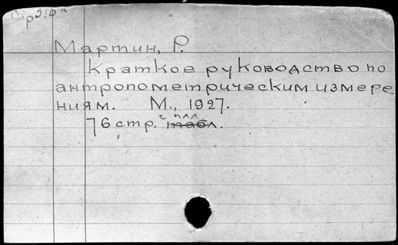 Мартин, Р.
Краткое руководство по
антропометрическим измере
ниям. М., 1927.
76 стр. с илл табл.